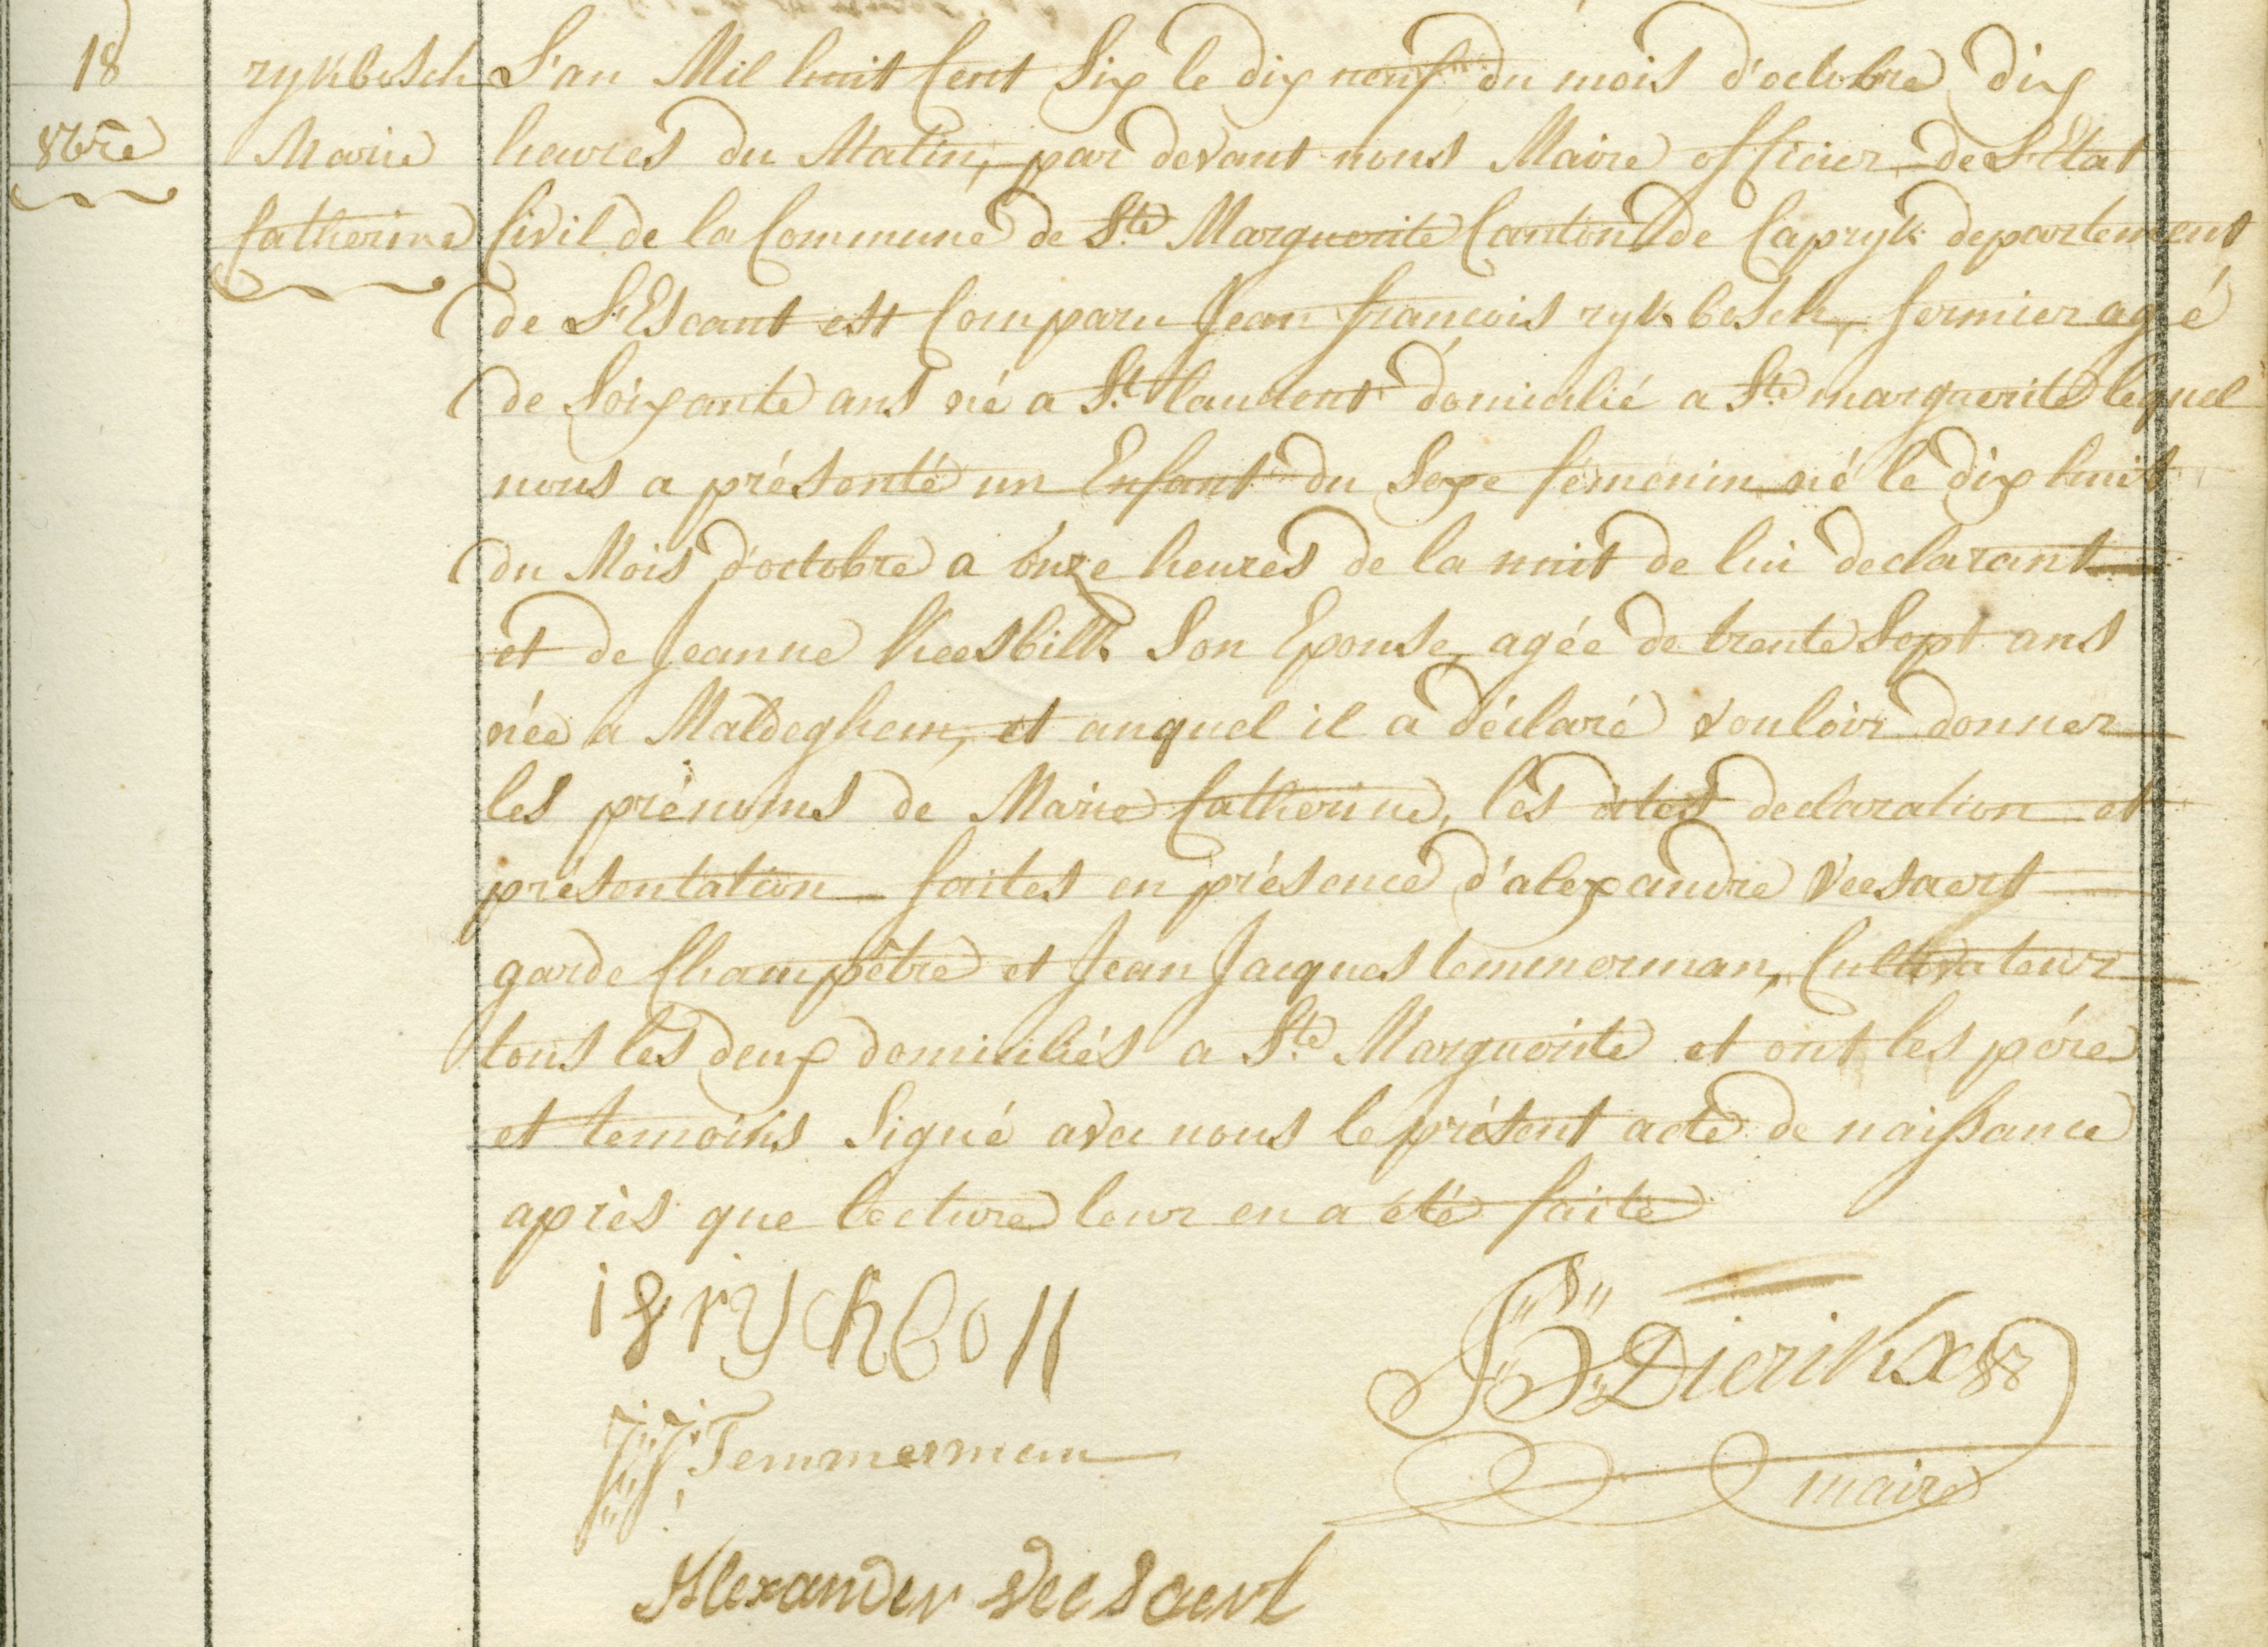 18
8bre
rykbosch
Marie
Catherine
L'an Mil huit Cent Six le dix neuf du mois d'octobre dix
heures du Matin, par devant nous Maire officier de L'Etat
Civil de la Commune de Ste Marguerite Canton de Capryk departement
de L'Escaut est Comparu Jean francois rykbosch, fermier agé
de Soixante ans né a St. laurent domicilié a Ste marguerite lequel
nous a présenté un Enfant du Sexe femenin né le dix huit
du Mois d'octobre a onze heures de la nuit de lui declarant
et de Jeanne Son Epouse, agée de trente Sept ans
née a Maldeghem, et auquel il a déclaré vouloir donner
les prénoms de Marie Catherine, les dites declaration et
présentation faites en présence d'alexandre Veesaert
garde Champêtre et Jean Jacques temmerman, Cultivateur
tous les deux domiciliés a Ste Marguerite et ont les pére
et temoins Signé avec nous le présent acte de naissance
après que lecture leur en a été faite
J B Dierikx
maire
J: J: Temmerman
Alexander Vee Saert